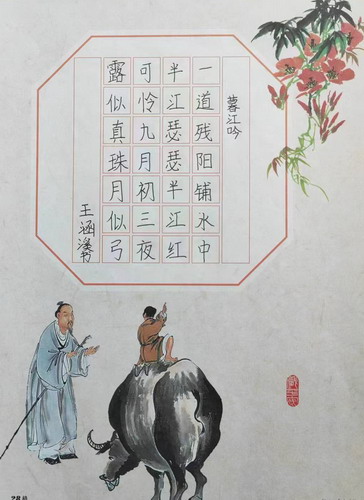 暮江吟
一道残阳铺水中
半江瑟瑟半江红
可怜九月初三夜
露似真珠月似弓
王涵